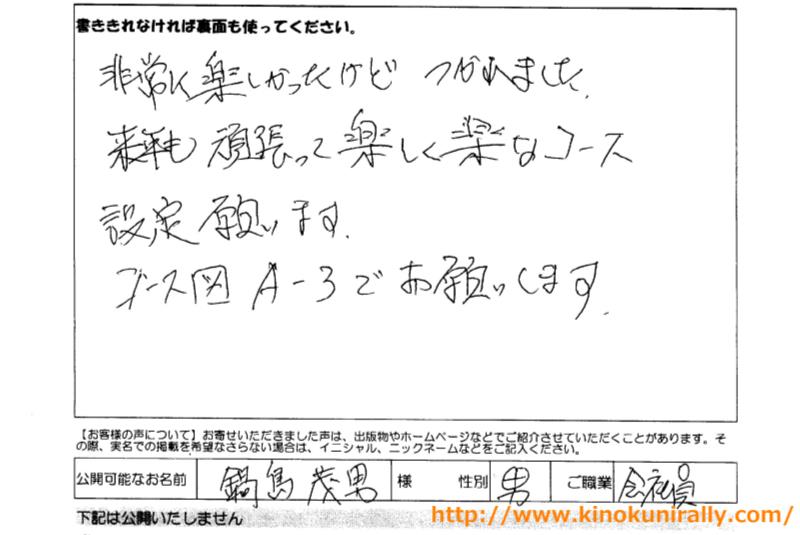 書ききれなければ裏面も使ってください。
非常に楽しかったけど つかれました.
来年も 頑張って楽しく楽なコース
設定願います.
コース図 A-3でお願いします.
【お客様の声について】お寄せいただきました声は、出版物やホームページなどでご紹介させていただくことがあります。そ
の際、実名での掲載を希望なさらない場合は、イニシャル、ニックネームなどをご記入ください。
公開可能なお名前 鍋島 茂男 様 性別 男 ご職業 会社員
下記は公開いたしません
http://www.kinokunirally.com/